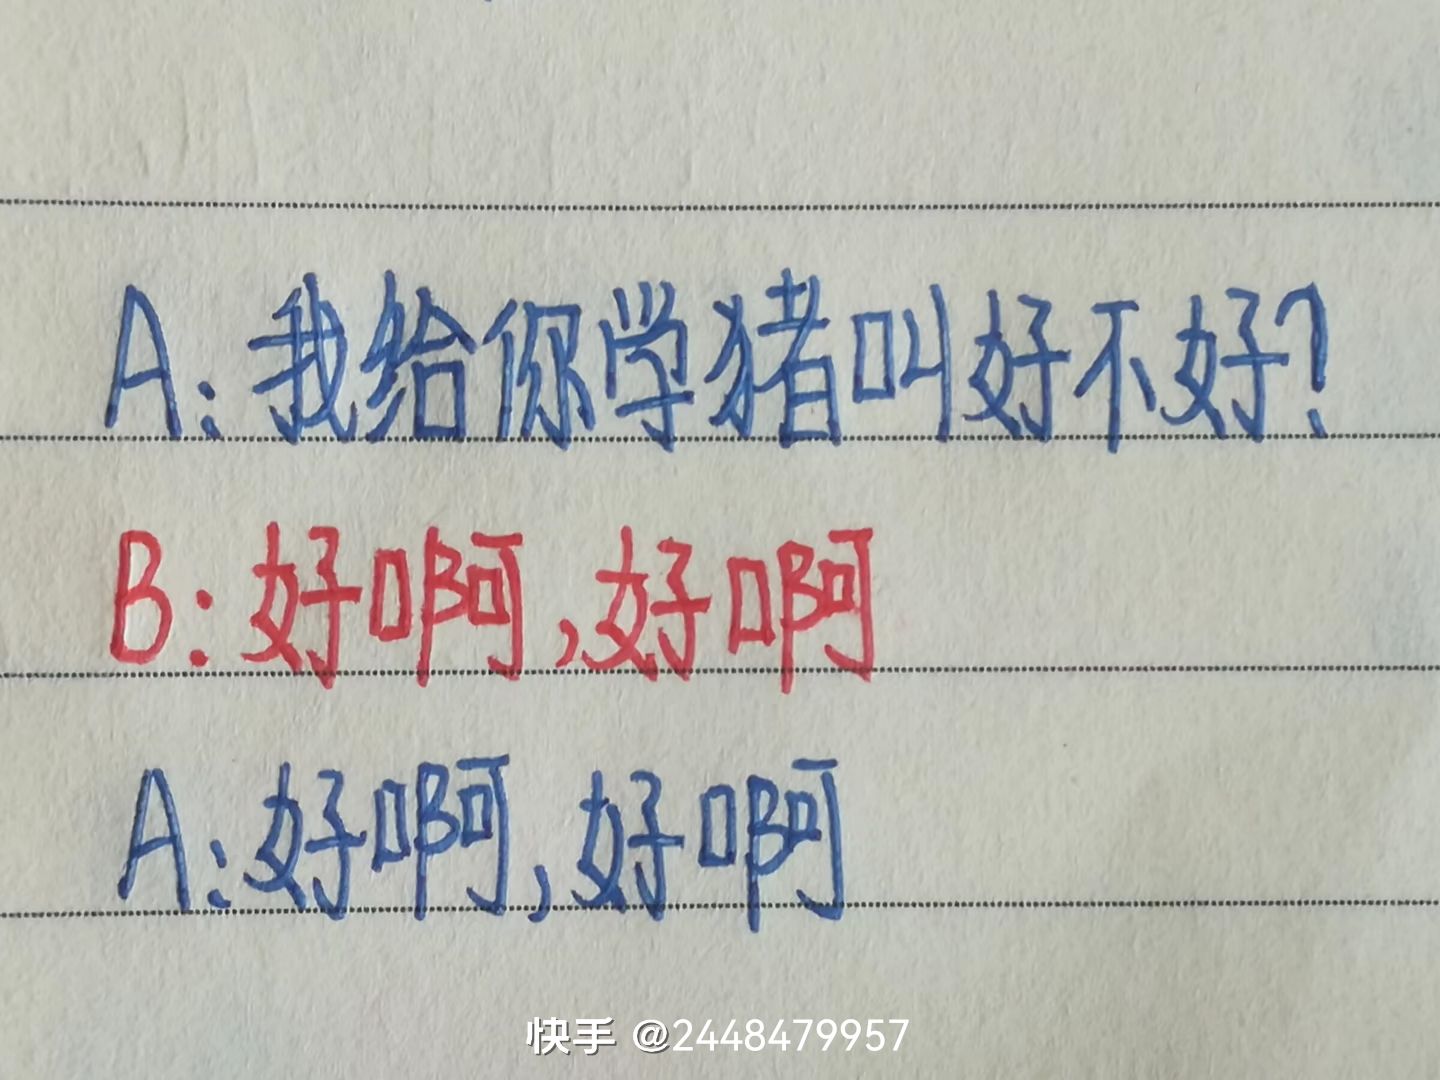 A：我给你学猪叫好不好？
B：好啊，好啊
A：好啊，好啊
快手 @2448479957